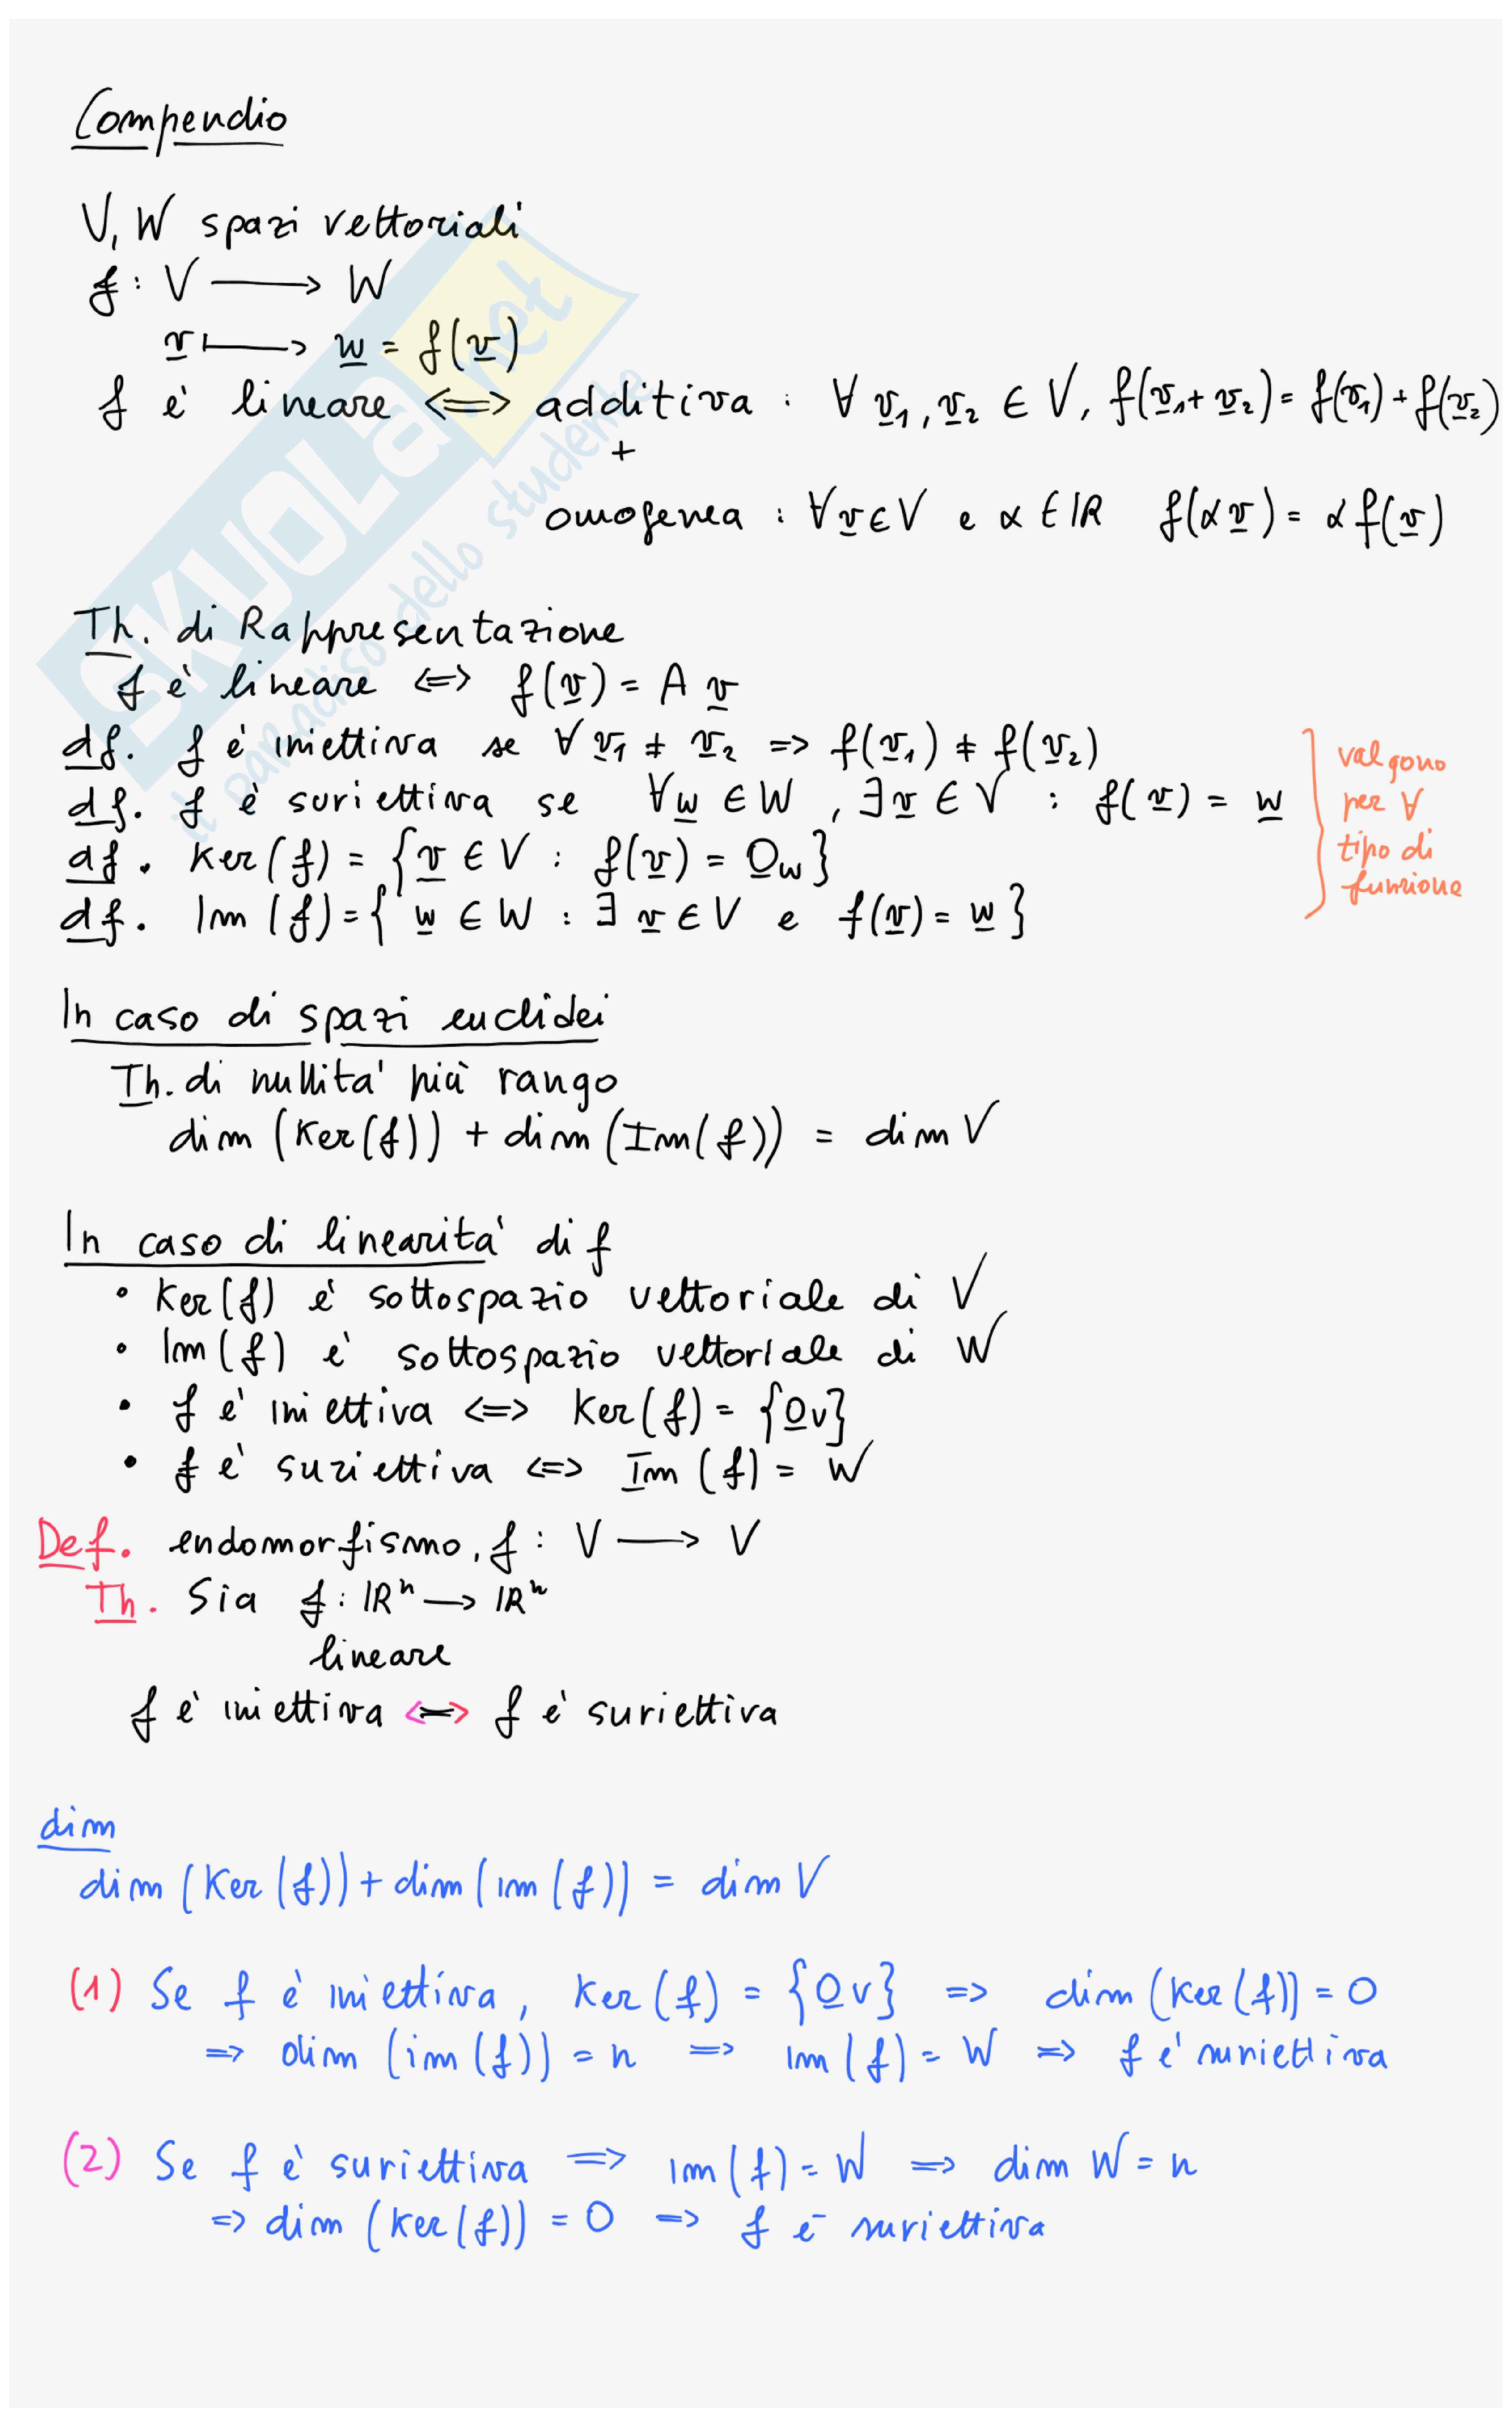 Compendio
V, W spazi vettoriali
f : V ⟶ W
v ⟼ w = f(v)
f è lineare ⟺ additiva : ∀ v₁, v₂ ∈ V, f(v₁+ v₂) = f(v₁) + f(v₂)
+
omogenea : ∀ v ∈ V e α ∈ ℝ f(αv) = αf(v)
Th. di Rappresentazione
f è lineare ⟺ f(v) = A v
df. f è iniettiva se ∀ v₁ ≠ v₂ => f(v₁) ≠ f(v₂)
df. f è suriettiva se ∀w ∈ W, ∃ v ∈ V : f(v) = w
df. Ker(f) = {v ∈ V : f(v) = 0w}
df. Im (f) = { w ∈ W : ∃ v ∈ V e f(v) = w }
valgono
per ∀
tipo di
funzione
In caso di spazi euclidei
Th. di nullita' più rango
dim (Ker(f)) + dim (Im(f)) = dim V
In caso di linearita' di f
• Ker(f) è sottospazio vettoriale di V
• Im(f) è sottospazio vettoriale di W
• f è iniettiva ⟺ Ker(f) = {0v}
• f è suriettiva ⟺ Im (f) = W
Def. endomorfismo, f : V ⟶ V
Th. Sia f : ℝⁿ ⟶ ℝⁿ
lineare
f è iniettiva ⟺ f è suriettiva
dim
dim (Ker (f)) + dim (im (f)) = dim V
(1) Se f è iniettiva, Ker (f) = {0v} => dim (Ker (f)) = 0
=> dim (im (f)) = n => im (f) = W => f è suriettiva
(2) Se f è suriettiva => im (f) = W => dim W = n
=> dim (Ker(f)) = 0 => f è suriettiva
SKUOLA.net
il paradiso dello studente